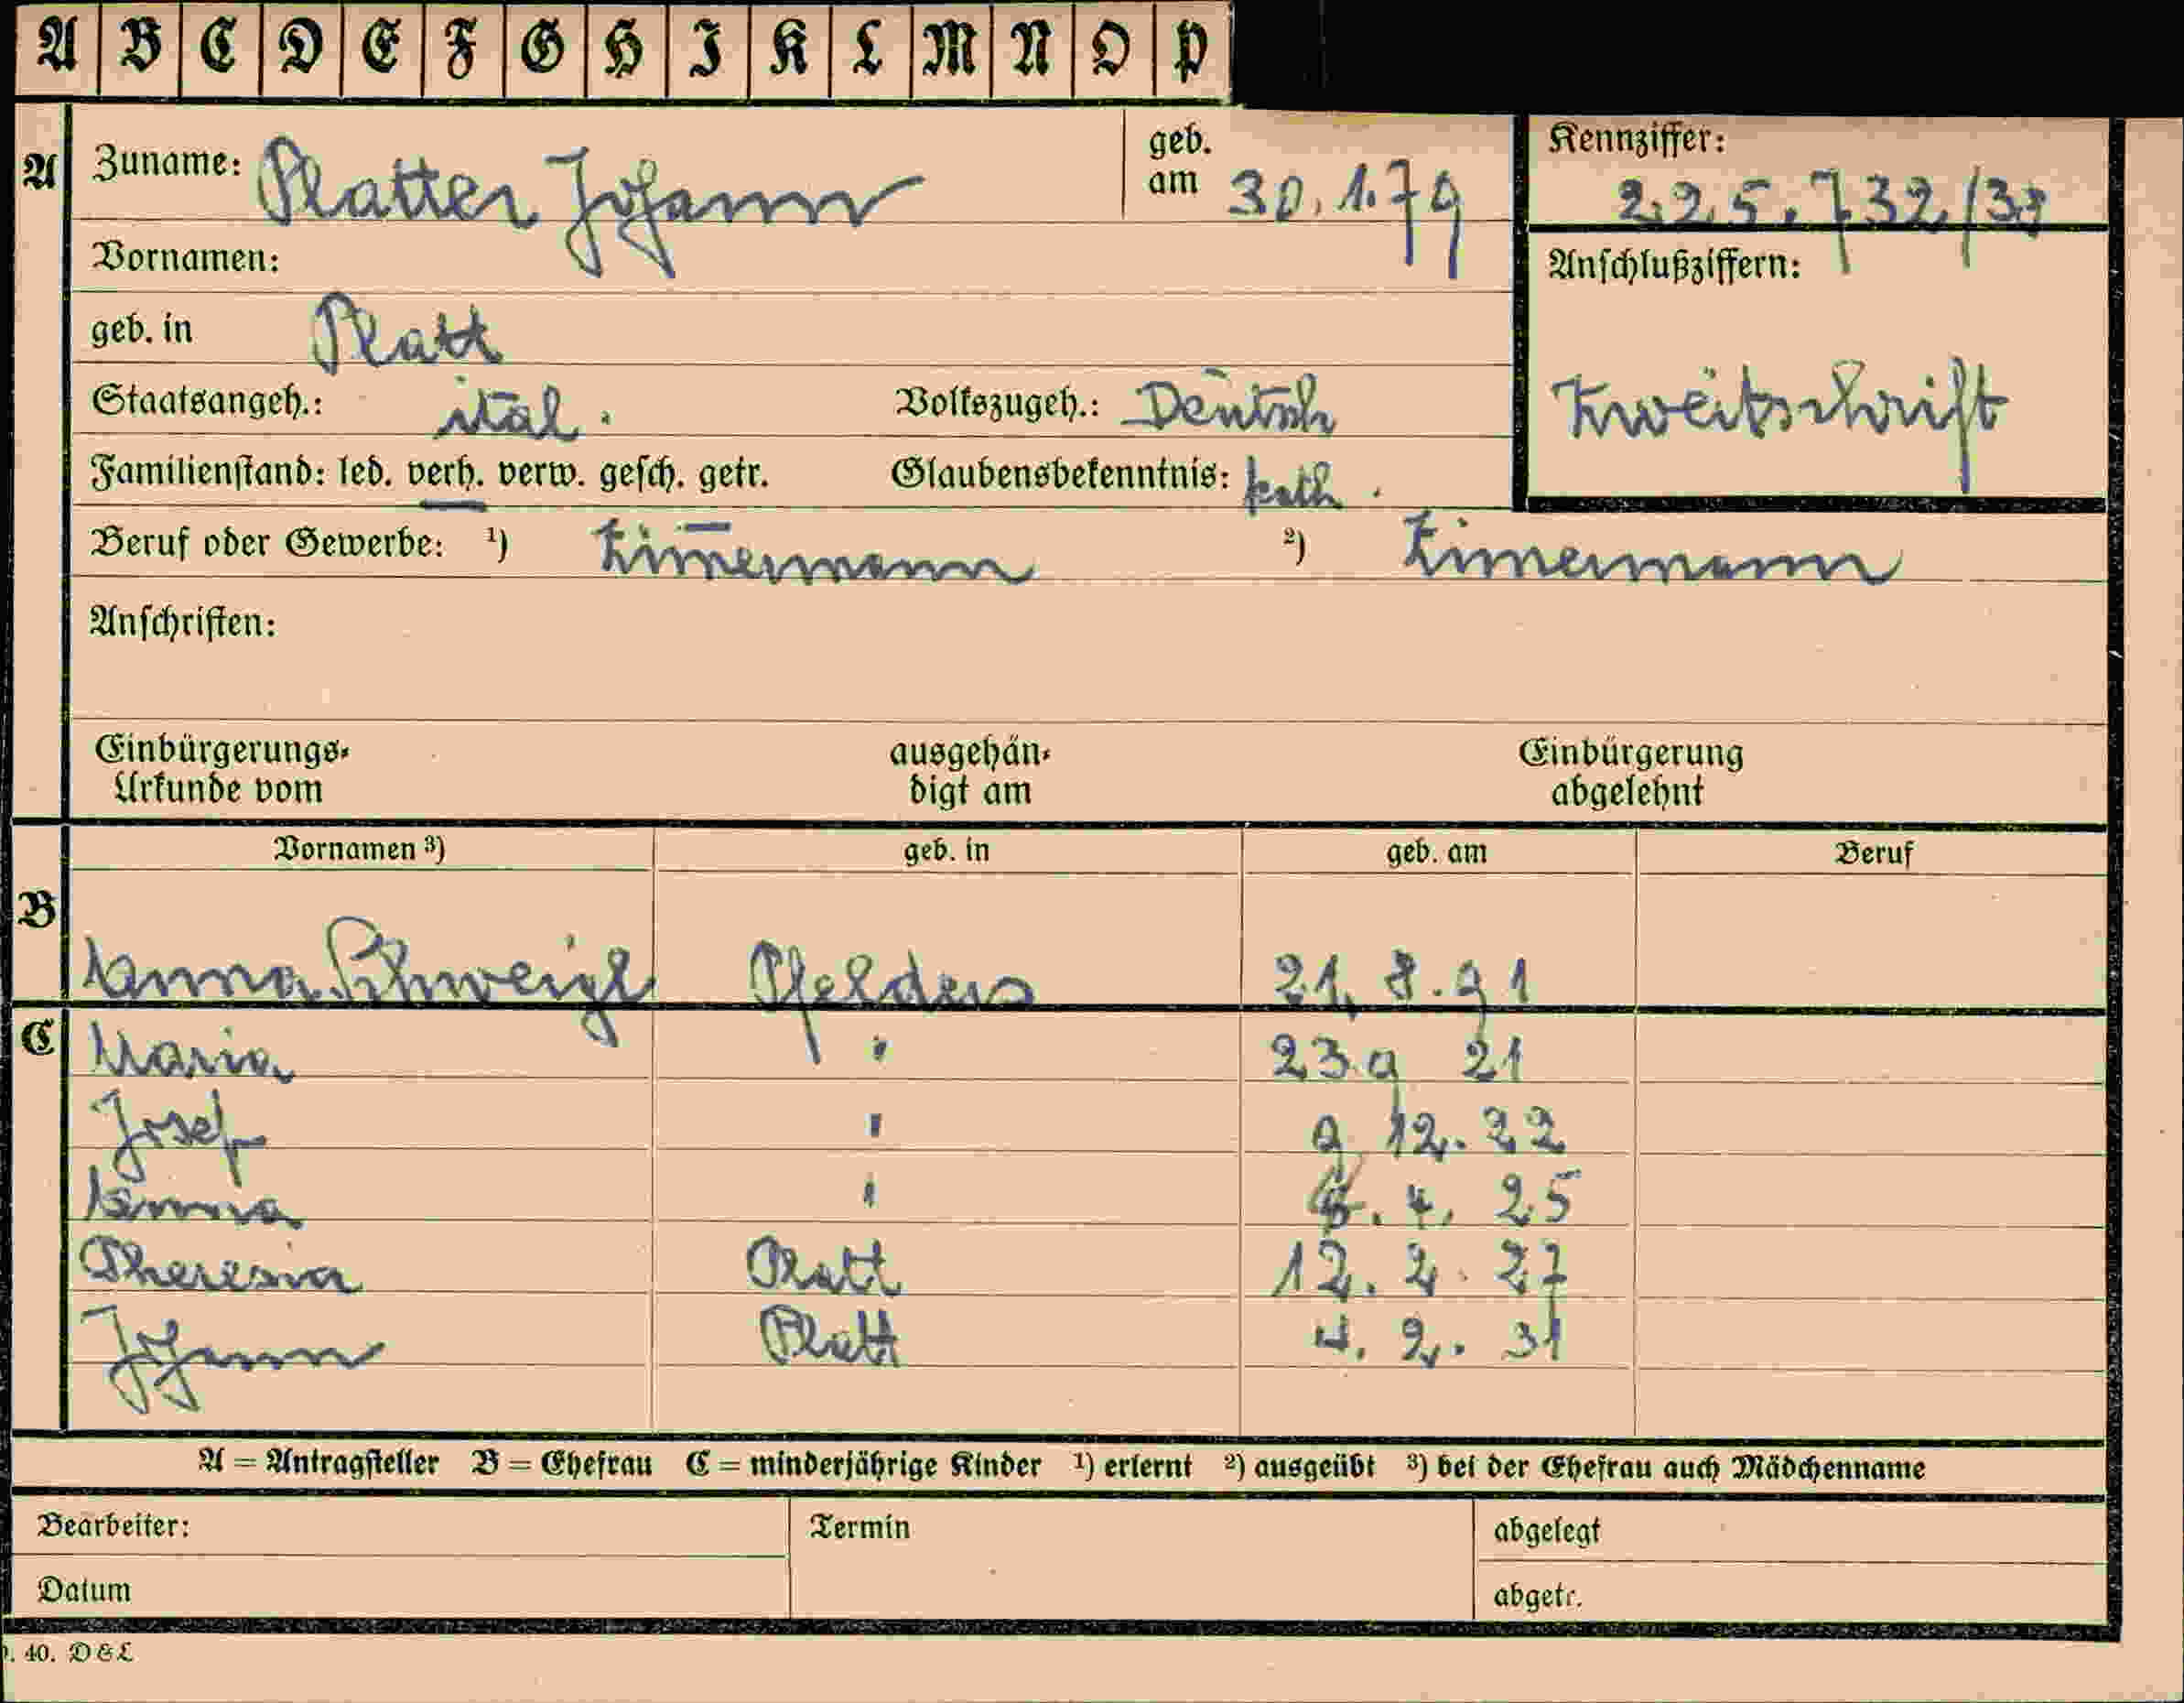 A B C D E F G H I K L M N O P
A Zuname: Platter Johann geb. am 30.1.79 Kennziffer: 225.732/33
Vornamen: Anschlußziffern:
geb. in Platt
Staatsangeh.: ital. Volkszugeh.: Deutsch Zweitschrift
Familienstand: led. verh. verw. gesch. getr. Glaubensbekenntnis: kath.
Beruf oder Gewerbe: ¹) Zim̅ermann ²) Zimmermann
Anschriften:
Einbürgerungs- ausgehän- Einbürgerung
Urkunde vom digt am abgelehnt
Vornamen ³) geb. in geb. am Beruf
B Anna Schweigl Pfelders 21. 8. 91
C Maria " 23. 9 21
Josef " 9 12. 22
Anna " 4. 25
Theresia Platt 12. 2. 27
Johann Platt 4. 2. 31
A = Antragsteller B = Ehefrau C = minderjährige Kinder ¹) erlernt ²) ausgeübt ³) bei der Ehefrau auch Mädchenname
Bearbeiter: Termin abgelegt
Datum abgetr.
40. D&L